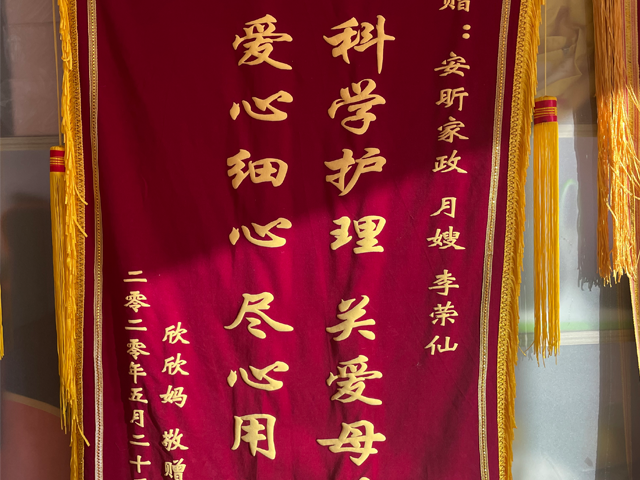 赠：安昕家政 月嫂 李荣仙
科学护理 关爱母
爱心细心 尽心用
欣欣妈 敬赠
二零二零年五月二十